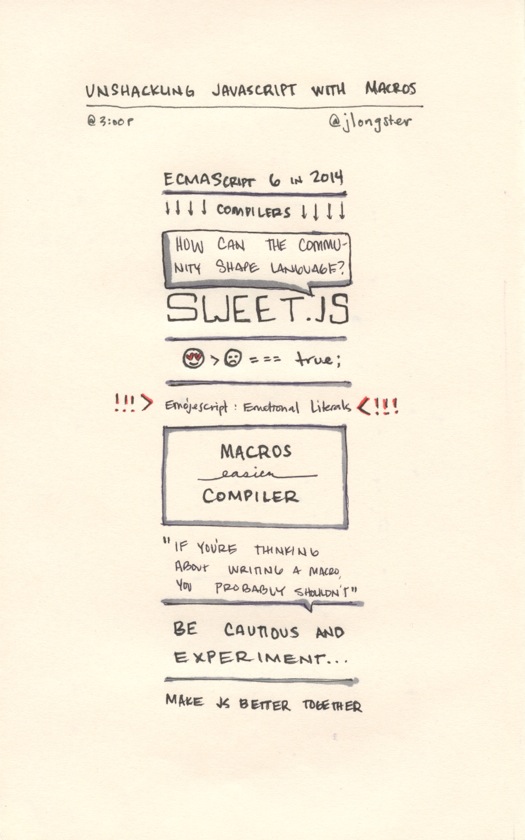 UNSHACKLING JAVASCRIPT WITH MACROS
@3:00P @jlongster
ECMASCRIPT 6 IN 2014
↓↓↓↓ COMPILERS ↓↓↓↓
HOW CAN THE COMMU-
NITY SHAPE LANGUAGE?
SWEET.JS
😍 > ☹ === true;
!!! > Emojescript: Emotional Literals < !!!
MACROS
easier
COMPILER
"IF YOU'RE THINKING
ABOUT WRITING A MACRO,
YOU PROBABLY SHOULDN'T"
BE CAUTIOUS AND
EXPERIMENT...
MAKE JS BETTER TOGETHER